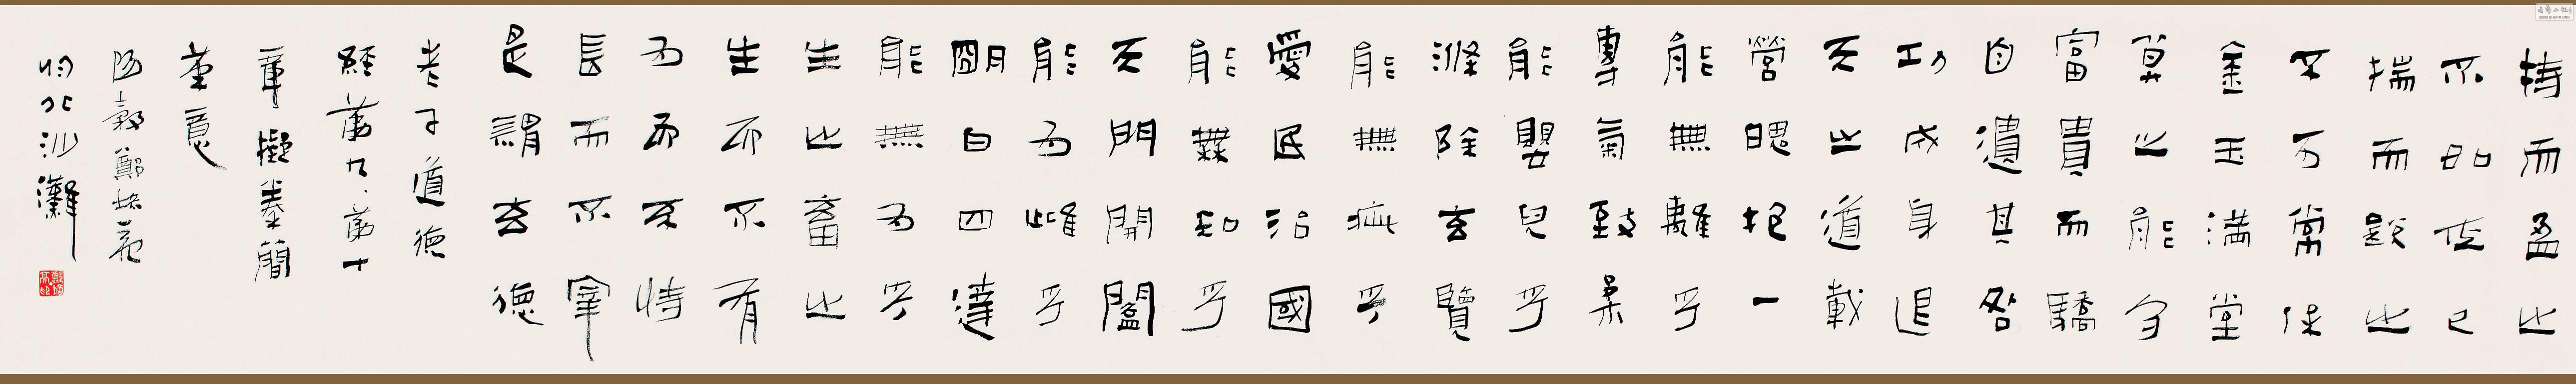 持而盈之
不如其已
揣而銳之
不可常保
金玉滿堂
莫之能守
富貴而驕
自遺其咎
功成身退
天之道載
營魄抱一
能無離乎
專氣致柔
能嬰兒乎
滌除玄覽
能無疵乎
愛民治國
能無知乎
天門開闔
能為雌乎
明白四達
能無為乎
生之畜之
生而不有
為而不恃
長而不宰
是謂玄德
老子道德
經第九、第十
章擬秦簡
筆意
陽穀鄭培亮
於北沙灘